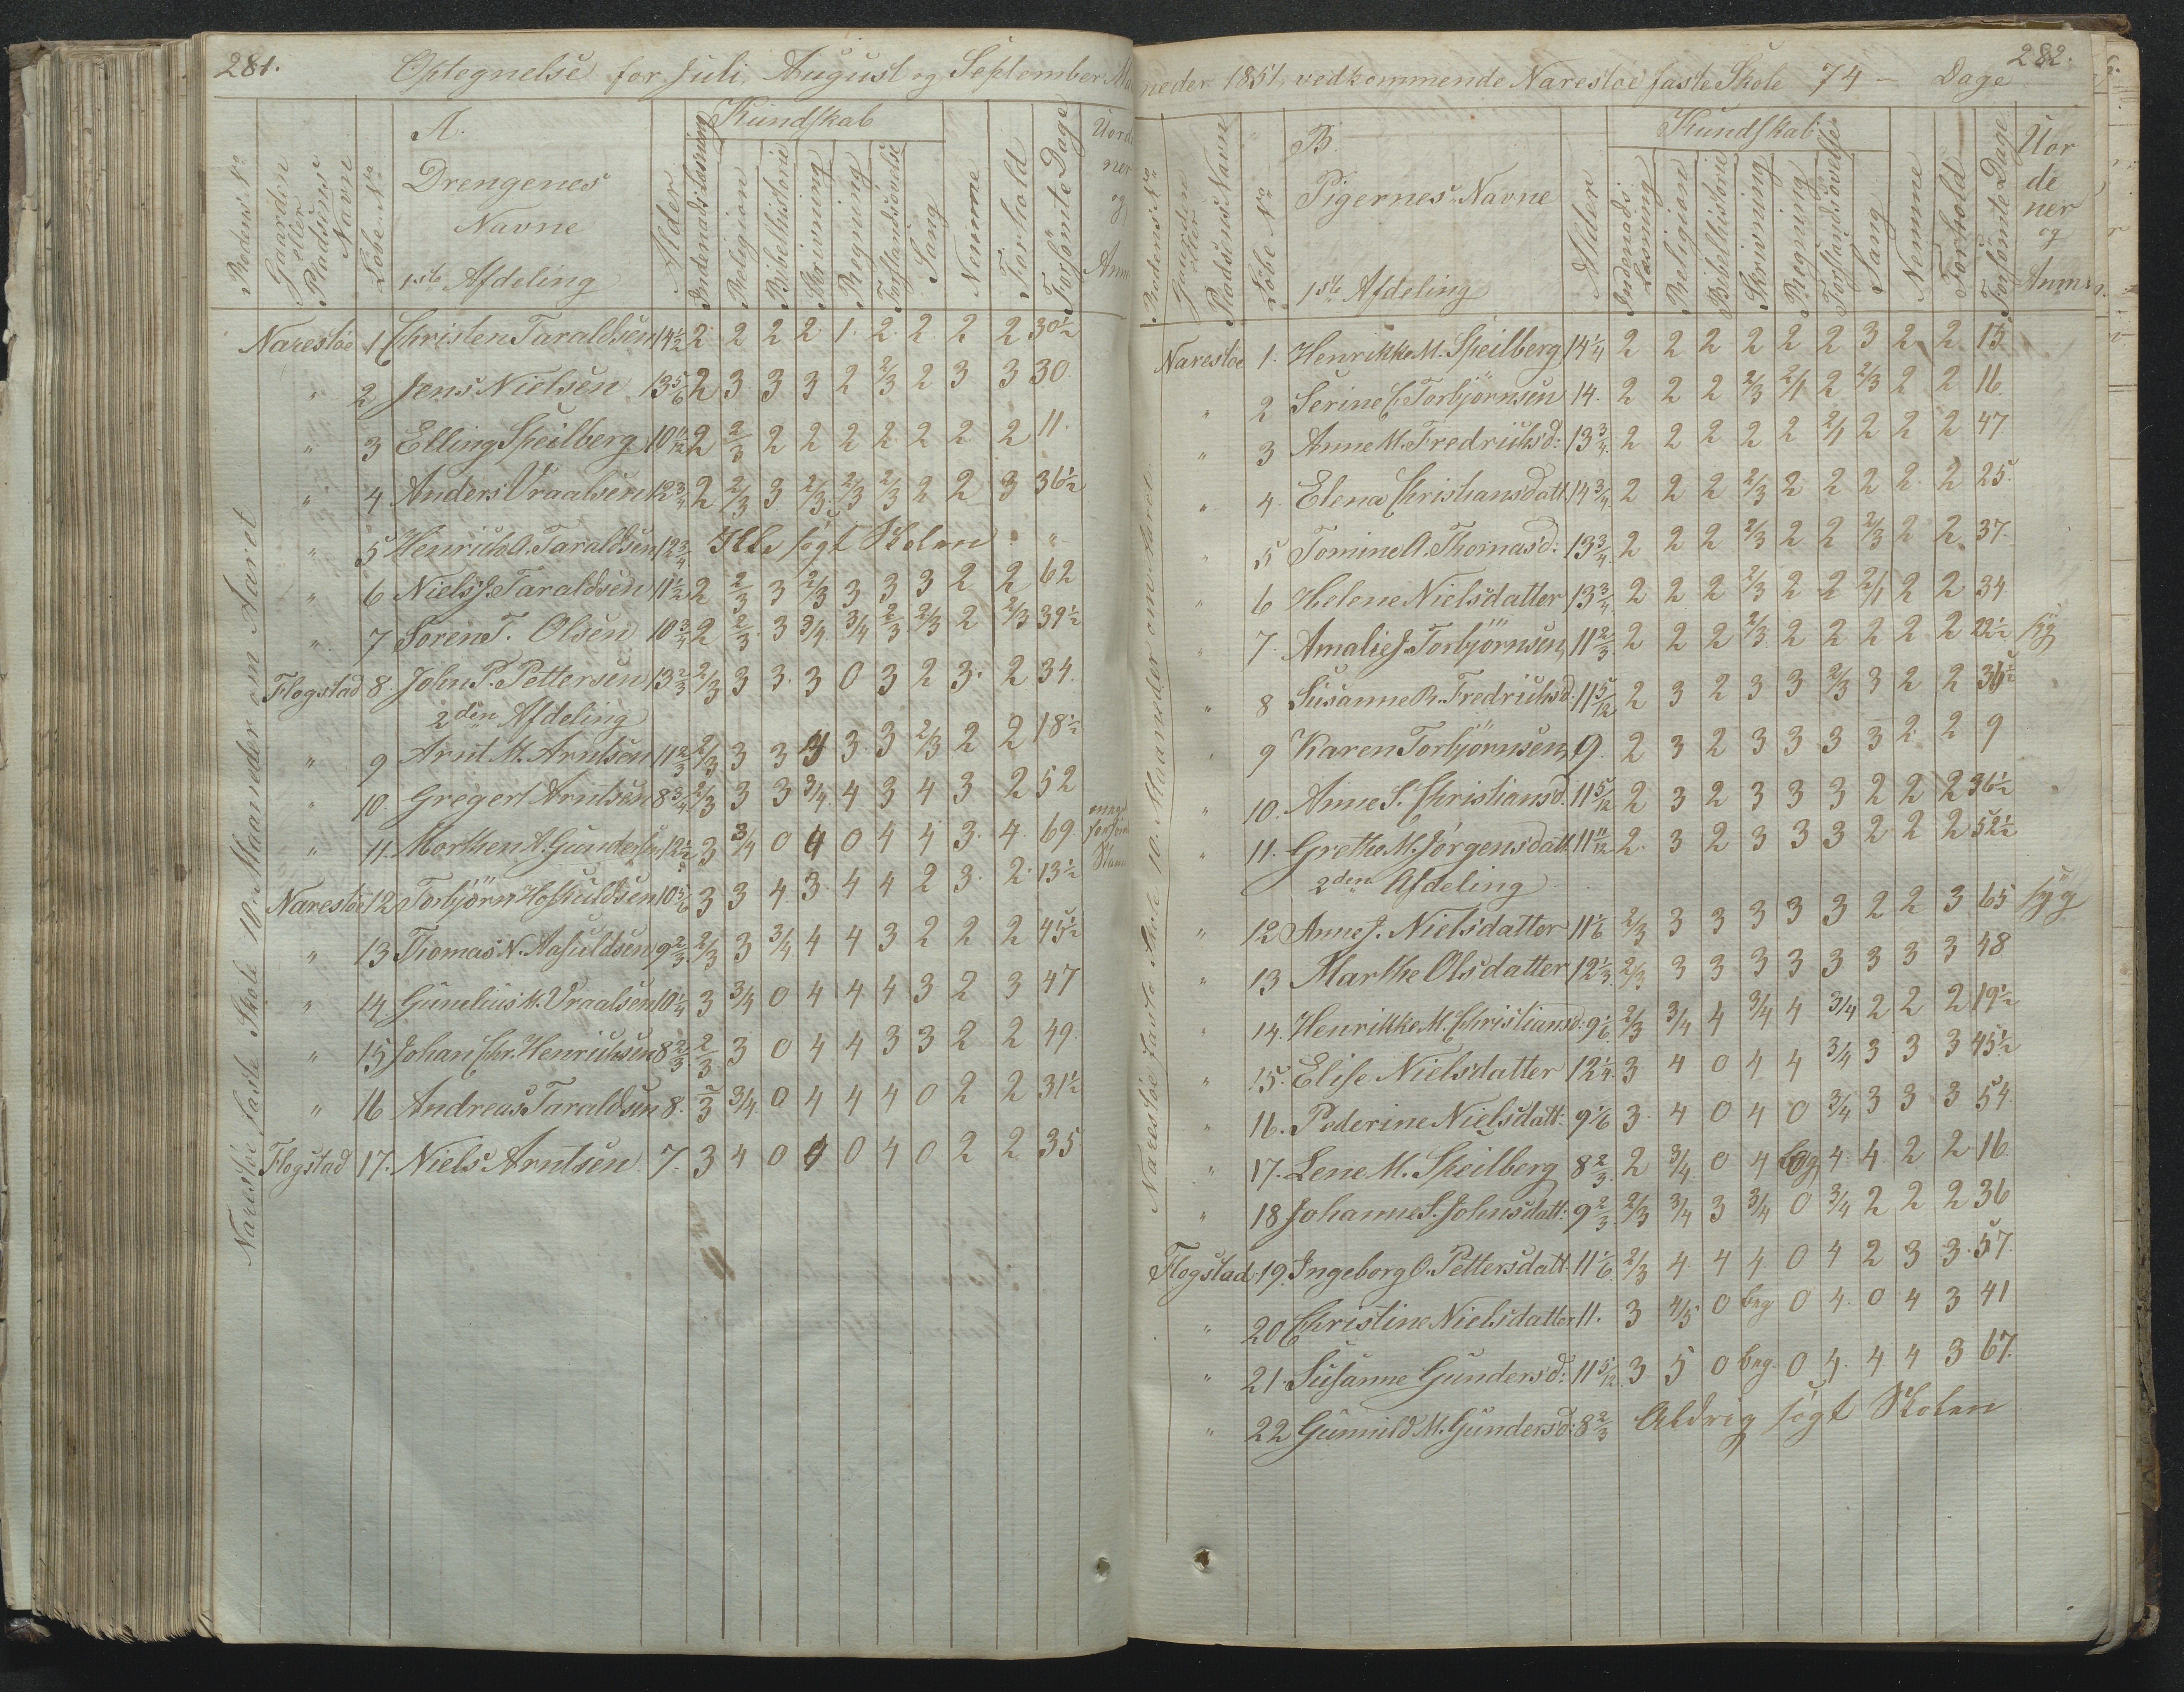 281.
Optegnelse for Juli, August og September Ma
Rodens No
Gaarden eller Pladsens Navn
Løbe No
A.
Drengenes
Navne
1ste Afdeling
Alder
Kundskab
Indenadslæsning
Religion
Bibelhistorie
Skrivning
Regning
Forstandsøvelse
Sang
Nemme
Forhold
Forsömte Dage
Uord
ner
og
Anm
Naresöe faste Skole 10 Maaneder om Aaret
Narestöe 1 Christen Taraldsen 14½ 2 2 2 2 1. 2 2 2 2 30½
" 2 Jens Nielsen 13 5/6 2 3 3 3 2 2/3 2 3 3 30.
" 3 Elling Speilberg 10 11/12 2 2/3 2 2 2 2 2 2 2 11.
" 4 Anders Vraalsen 12¾ 2 2/3 3 2/3 2/3 2/3 2 2 3 36½
" 5 Henrich A. Taraldsen 12¾ Ikke søgt Skolen "
" 6 Niels J. Taraldsen 11½ 2 2/3 3 2/3 3 3 3 2 2 62
" 7 Søren T. Olsen 10¾ 2 2/3 3 3/4 3/4 2/3 2/3 2 2/3 39½
Flogstad 8. John P. Pettersen 13 2/3 2/3 3 3. 3 0 3 2 3. 2 34.
2den Afdeling
" 9 Arnt M. Arntsen 11 2/3 2/3 3 3 4 3 3 2/3 2 2 18½
" 10. Gregert Arntsen 8¾ 2/3 3 3 3/4 4 3 4 3 2 52
" 11. Morthen A. Gundersen 12½ 3 3/4 0 4 0 4 4 3. 4. 69
Narestöe 12 Torbjörn Hofsuldsen 10 5/6 3 3 4 3 4 4 2 3. 2. 13½
" 13 Thomas N. Aasuldsen 9 2/3 2/3 3 3/4 4 4 3 2 2 2 45½
" 14. Gunelius M. Vraalsen 10¼ 3 3/4 0 4 4 4 3 2 3 47
" 15 Johan Chr. Henrichsen 8 2/3 2/3 3 0 4 4 3 3 2 2 49
" 16 Andreas Taraldsen 8. 2/3 3/4 0 4 4 4 0 2 2 31½
Flogstad 17. Niels Arntsen 7. 3 4 0 4 0 4 0 2 2 35
282.
neder 1851, vedkommende Narestöe faste Skole 74 - Dage
Rodens No
Gaarden eller Pladsens Navn
Løbe No
B.
Pigernes Navne
1ste Afdeling
Alder
Kundskab
Indenads Læsning
Religion
Bibelhistorie
Skrivning
Regning
Forstandsøvelse
Sang
Nemme
Forhold
Forsömte Dage
Uor
de
ner
og
Anm
Narestöe faste Skole 10. Maaneder om Aaret
Narestoe 1. Henrikke M. Speilberg 14¼ 2 2 2 2 2 2 3 2 2 13
" 2 Serine C. Torbjörnsen 14. 2 2 2 2/3 2/1 2 2/3 2 2 16
" 3 Anne M. Fredrichsd: 13¾ 2 2 2 2 2 2/1 2 2 2 47
" 4. Elena Christiansdatt. 14¾ 2 2 2 2/3 2 2 2 2 2 25.
" 5 Tomine A. Thomasd: 13¾ 2 2 2 2/3 2 2 2/3 2 2 37.
" 6 Helene Nielsdatter 13¾ 2 2 2 2/3 2 2 2/1 2 2 34
" 7. Amalie J. Torbjörnsen 11 2/3 2 2 2 2/3 2 2 2 2 2 22½ syg
" 8 Susanne R. Fredrichsd. 11 5/12 2 3 2 3 3 2/3 3 2 2 36½
" 9 Karen Torbjörnsen 9. 2 3 2 3 3 3 3 2 2 9
" 10. Anne S. Christiansd. 11 5/12 2 3 2 3 3 3 2 2 2 36½
" 11. Grethe M. Jörgensdatt. 11 11/12 2. 3 2 3 3 3 2 2 2 52½
2den Afdeling
" 12 Anne J. Nielsdatter 11 1/6 2/3 3 3 3 3 3 2 2 3 65 syg
" 13 Marthe Olsdatter 12 1/3 2/3 3 3 3 3 3 3 3 3 48
" 14. Henrikke M. Christiansd: 9 1/6 2/3 3/4 4 3/4 4 3/4 2 2 2 19½
" 15. Elise Nielsdatter 12¼ 3 4 0 4 4 3/4 3 3 3 45½
" 16. Pederine Nielsdatt: 9 1/6 3. 4 0 4 0 3/4 3 3 3 54
" 17. Lene M. Speilberg 8 2/3 2 3/4 0 4 beg 4 4 2 2 16
" 18 Johanne S. Johnsdatt: 9 2/3 2/3 3/4 3 3/4 0 3/4 2 2 2 36
Flogstad 19. Ingeborg O. Pettersdatt. 11 1/6 2/3 4 4 4 0 4 2 3 3. 57.
" 20 Christine Nielsdatter 11. 3 4/5 0 beg 0 4. 0 4 3 41
" 21. Susanne Gundersd: 11 5/12 3 5 0 beg. 0 4. 4 4 3 67.
" 22 Gunnild M. Gundersd: 8 2/3 Aldrig søgt Skolen